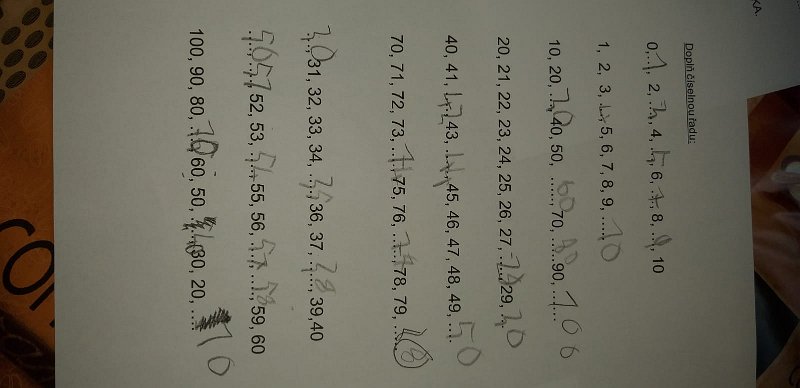 Doplň číselnou řadu:
0, 1, 2, 3, 4, 5, 6, 7, 8, 9, 10
1, 2, 3, 4, 5, 6, 7, 8, 9, 10
10, 20, 30, 40, 50, 60, 70, 80, 90, 100
20, 21, 22, 23, 24, 25, 26, 27, 28, 29, 30
40, 41, 42, 43, 44, 45, 46, 47, 48, 49, 50
70, 71, 72, 73, 74, 75, 76, 77, 78, 79,
30, 31, 32, 33, 34, 35, 36, 37, 38, 39, 40
50, 51, 52, 53, 54, 55, 56, 57, 58, 59, 60
100, 90, 80, 70, 60, 50, 40, 30, 20, 10
KA.